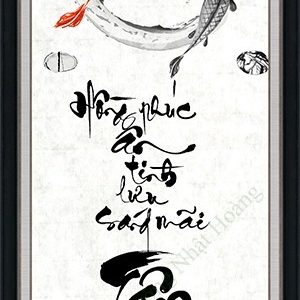 Hồng phúc
ân
tình
lưu
sang mãi
Nhật Hoàng